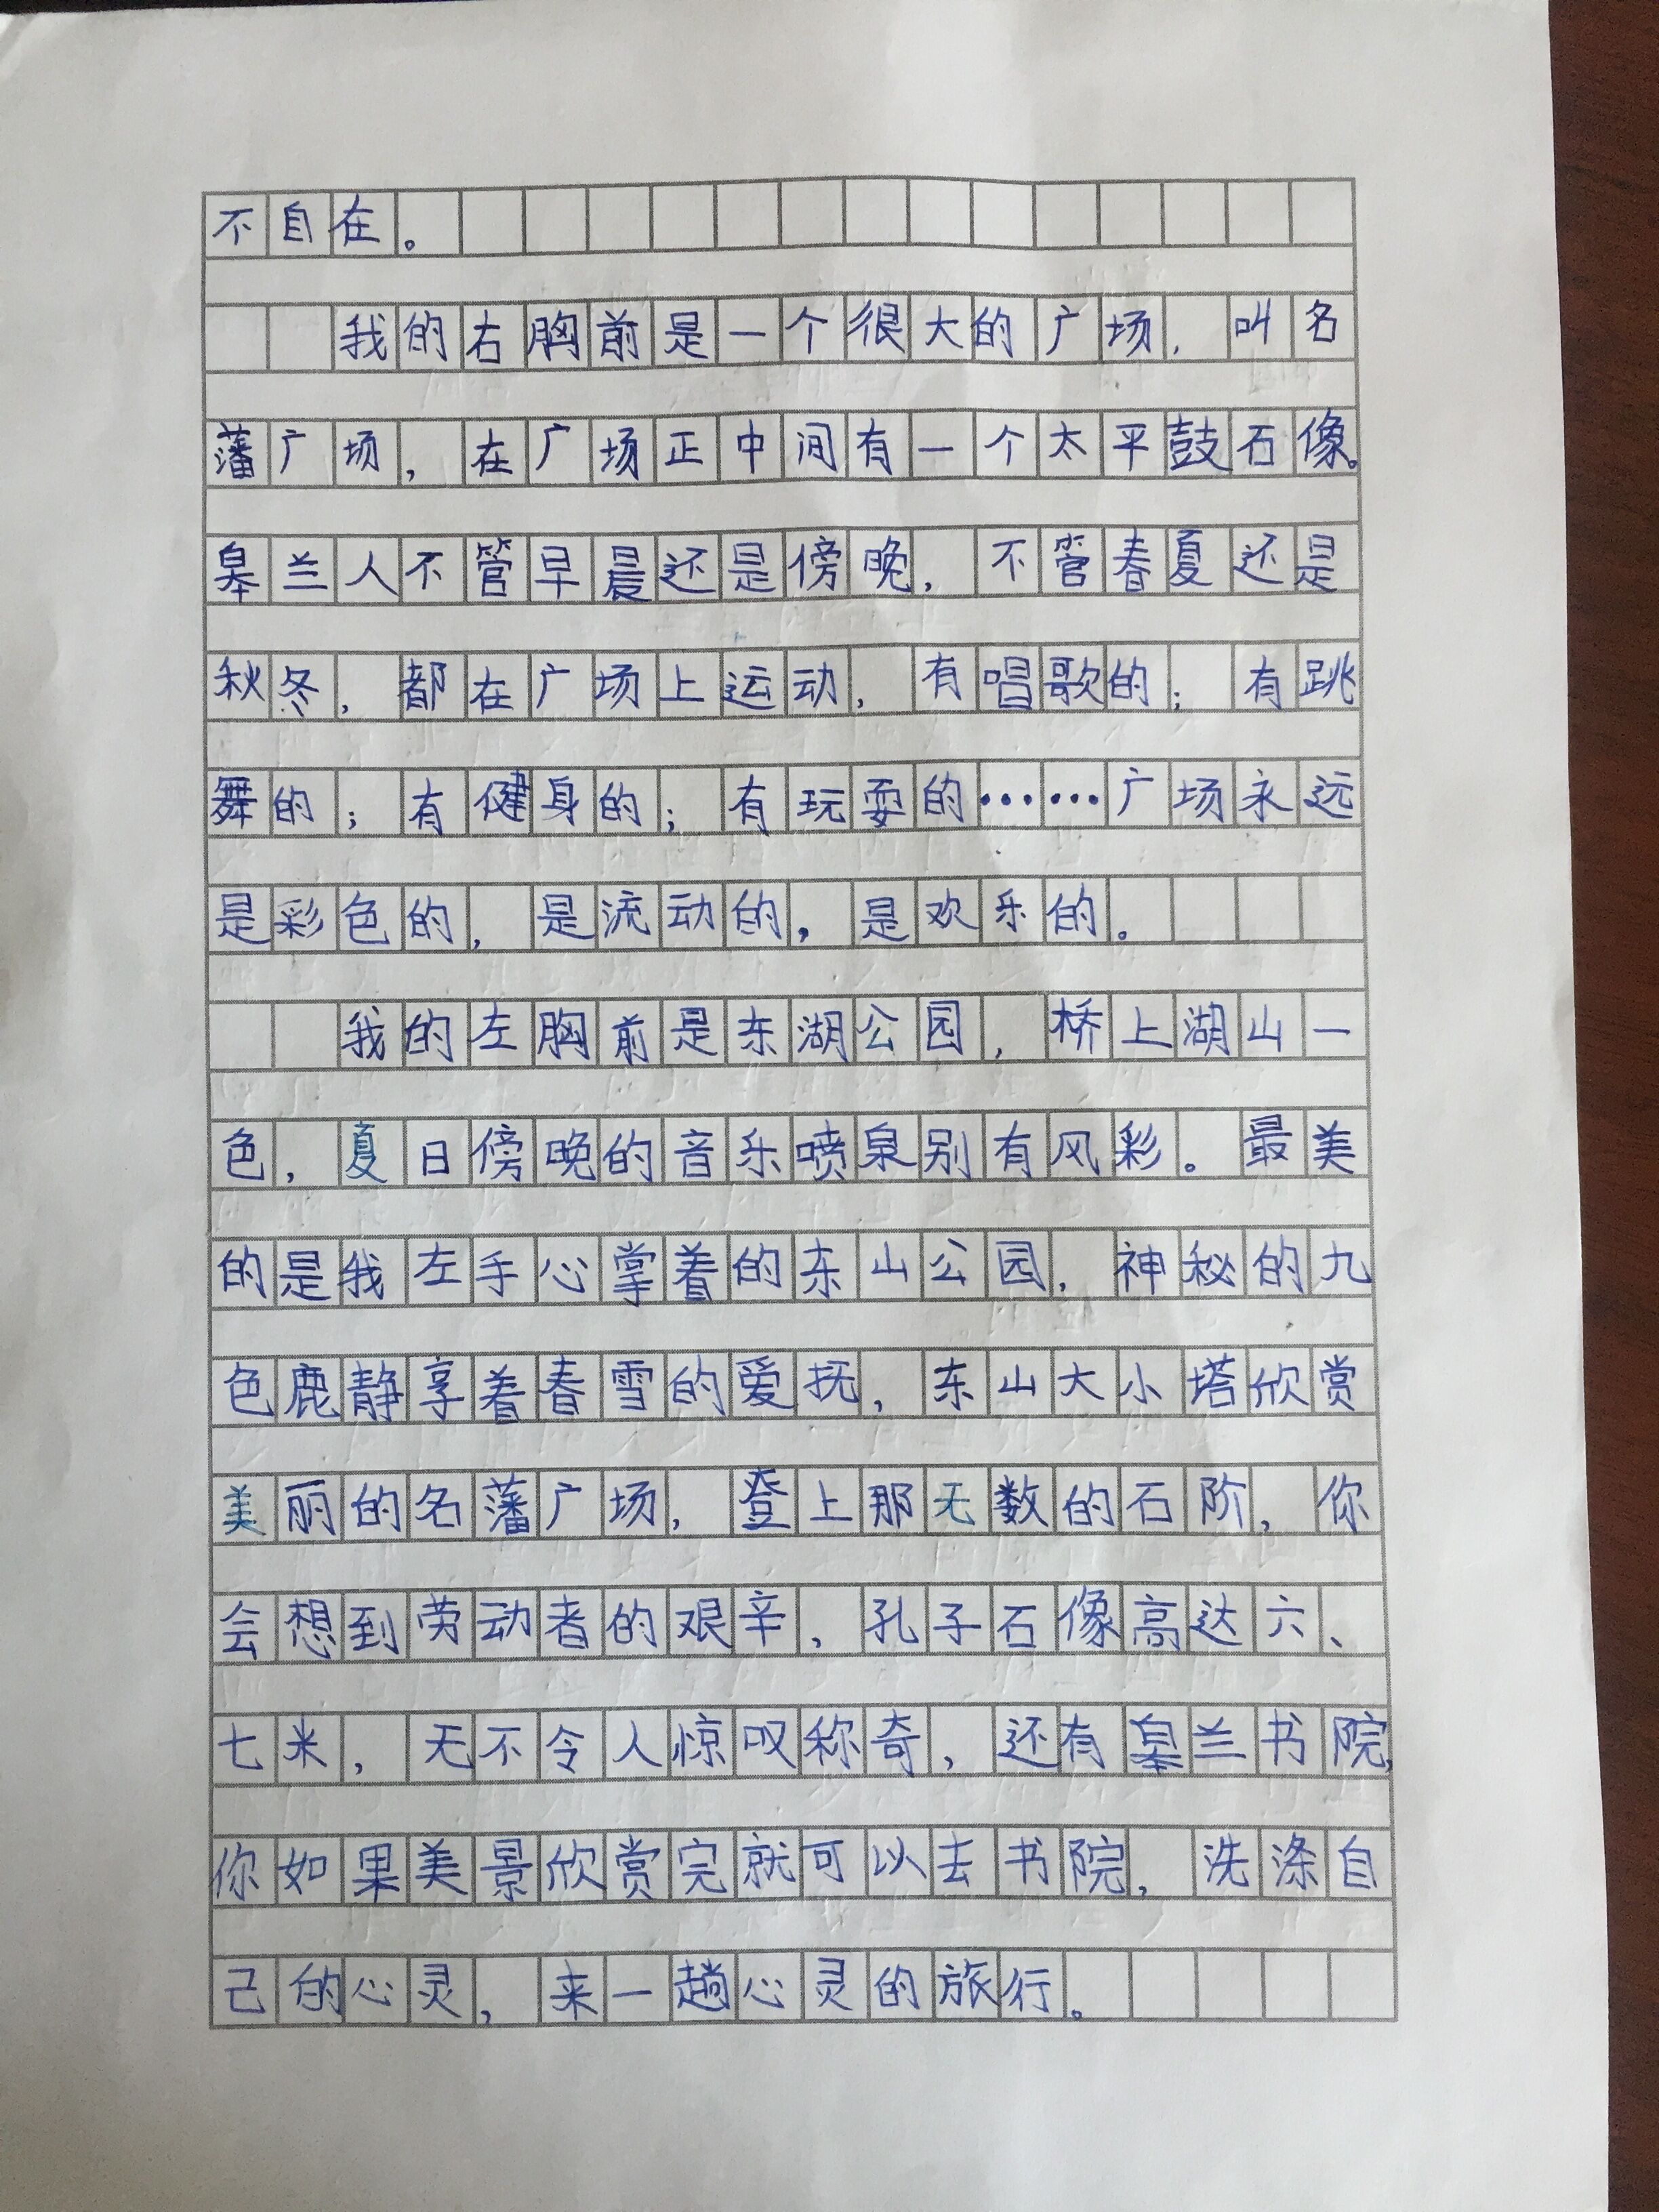 不自在。
我的右胸前是一个很大的广场，叫名
藩广场，在广场正中间有一个太平鼓石像。
皋兰人不管早晨还是傍晚，不管春夏还是
秋冬，都在广场上运动，有唱歌的；有跳
舞的；有健身的；有玩耍的……广场永远
是彩色的，是流动的，是欢乐的。
我的左胸前是东湖公园，桥上湖山一
色，夏日傍晚的音乐喷泉别有风彩。最美
的是我左手心掌着的东山公园，神秘的九
色鹿静享着春雪的爱抚，东山大小塔欣赏
美丽的名藩广场，登上那无数的石阶，你
会想到劳动者的艰辛，孔子石像高达六、
七米，无不令人惊叹称奇，还有皋兰书院，
你如果美景欣赏完就可以去书院，洗涤自
己的心灵，来一趟心灵的旅行。